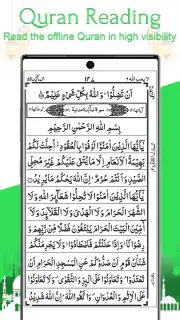 Quran Reading
Read the offline Quran in high visibility
لا يحب الله ٦
١٣٧
اَنْ تَضِلُّوْا ؕ وَاللّٰهُ بِكُلِّ شَیْءٍ عَلِیْمٌ
بِسْمِ اللّٰهِ الرَّحْمٰنِ الرَّحِيْمِ
يٰۤاَيُّهَا الَّذِيْنَ اٰمَنُوْۤا اَوْفُوْا بِالْعُقُوْدِ ؕ اُحِلَّتْ لَكُمْ
بَهِيْمَةُ الْاَنْعَامِ اِلَّا مَا يُتْلٰى عَلَيْكُمْ غَيْرَ مُحِلِّى
الصَّيْدِ وَاَنْتُمْ حُرُمٌ ؕ اِنَّ اللّٰهَ يَحْكُمُ مَا يُرِيْدُ
يٰۤاَيُّهَا الَّذِيْنَ اٰمَنُوْا لَا تُحِلُّوْا شَعَآئِرَ اللّٰهِ وَلَا
الشَّهْرَ الْحَرَامَ وَلَا الْهَدْىَ وَلَا الْقَلَآئِدَ وَلَاۤ
آٰمِّيْنَ الْبَيْتَ الْحَرَامَ يَبْتَغُوْنَ فَضْلًا مِّنْ رَّبِّهِمْ
وَرِضْوَانًا ؕ وَاِذَا حَلَلْتُمْ فَاصْطَادُوْا ؕ وَلَا يَجْرِمَنَّكُمْ
شَنَاٰنُ قَوْمٍ اَنْ صَدُّوْكُمْ عَنِ الْمَسْجِدِ الْحَرَامِ اَنْ
تَعْتَدُوْا ۘ وَتَعَاوَنُوْا عَلَى الْبِرِّ وَالتَّقْوٰى ۪ وَلَا تَعَاوَنُوْا
عَلَى الْاِثْمِ وَالْعُدْوَانِ ۪ وَاتَّقُوا اللّٰهَ ؕ اِنَّ اللّٰهَ شَدِيْدُ